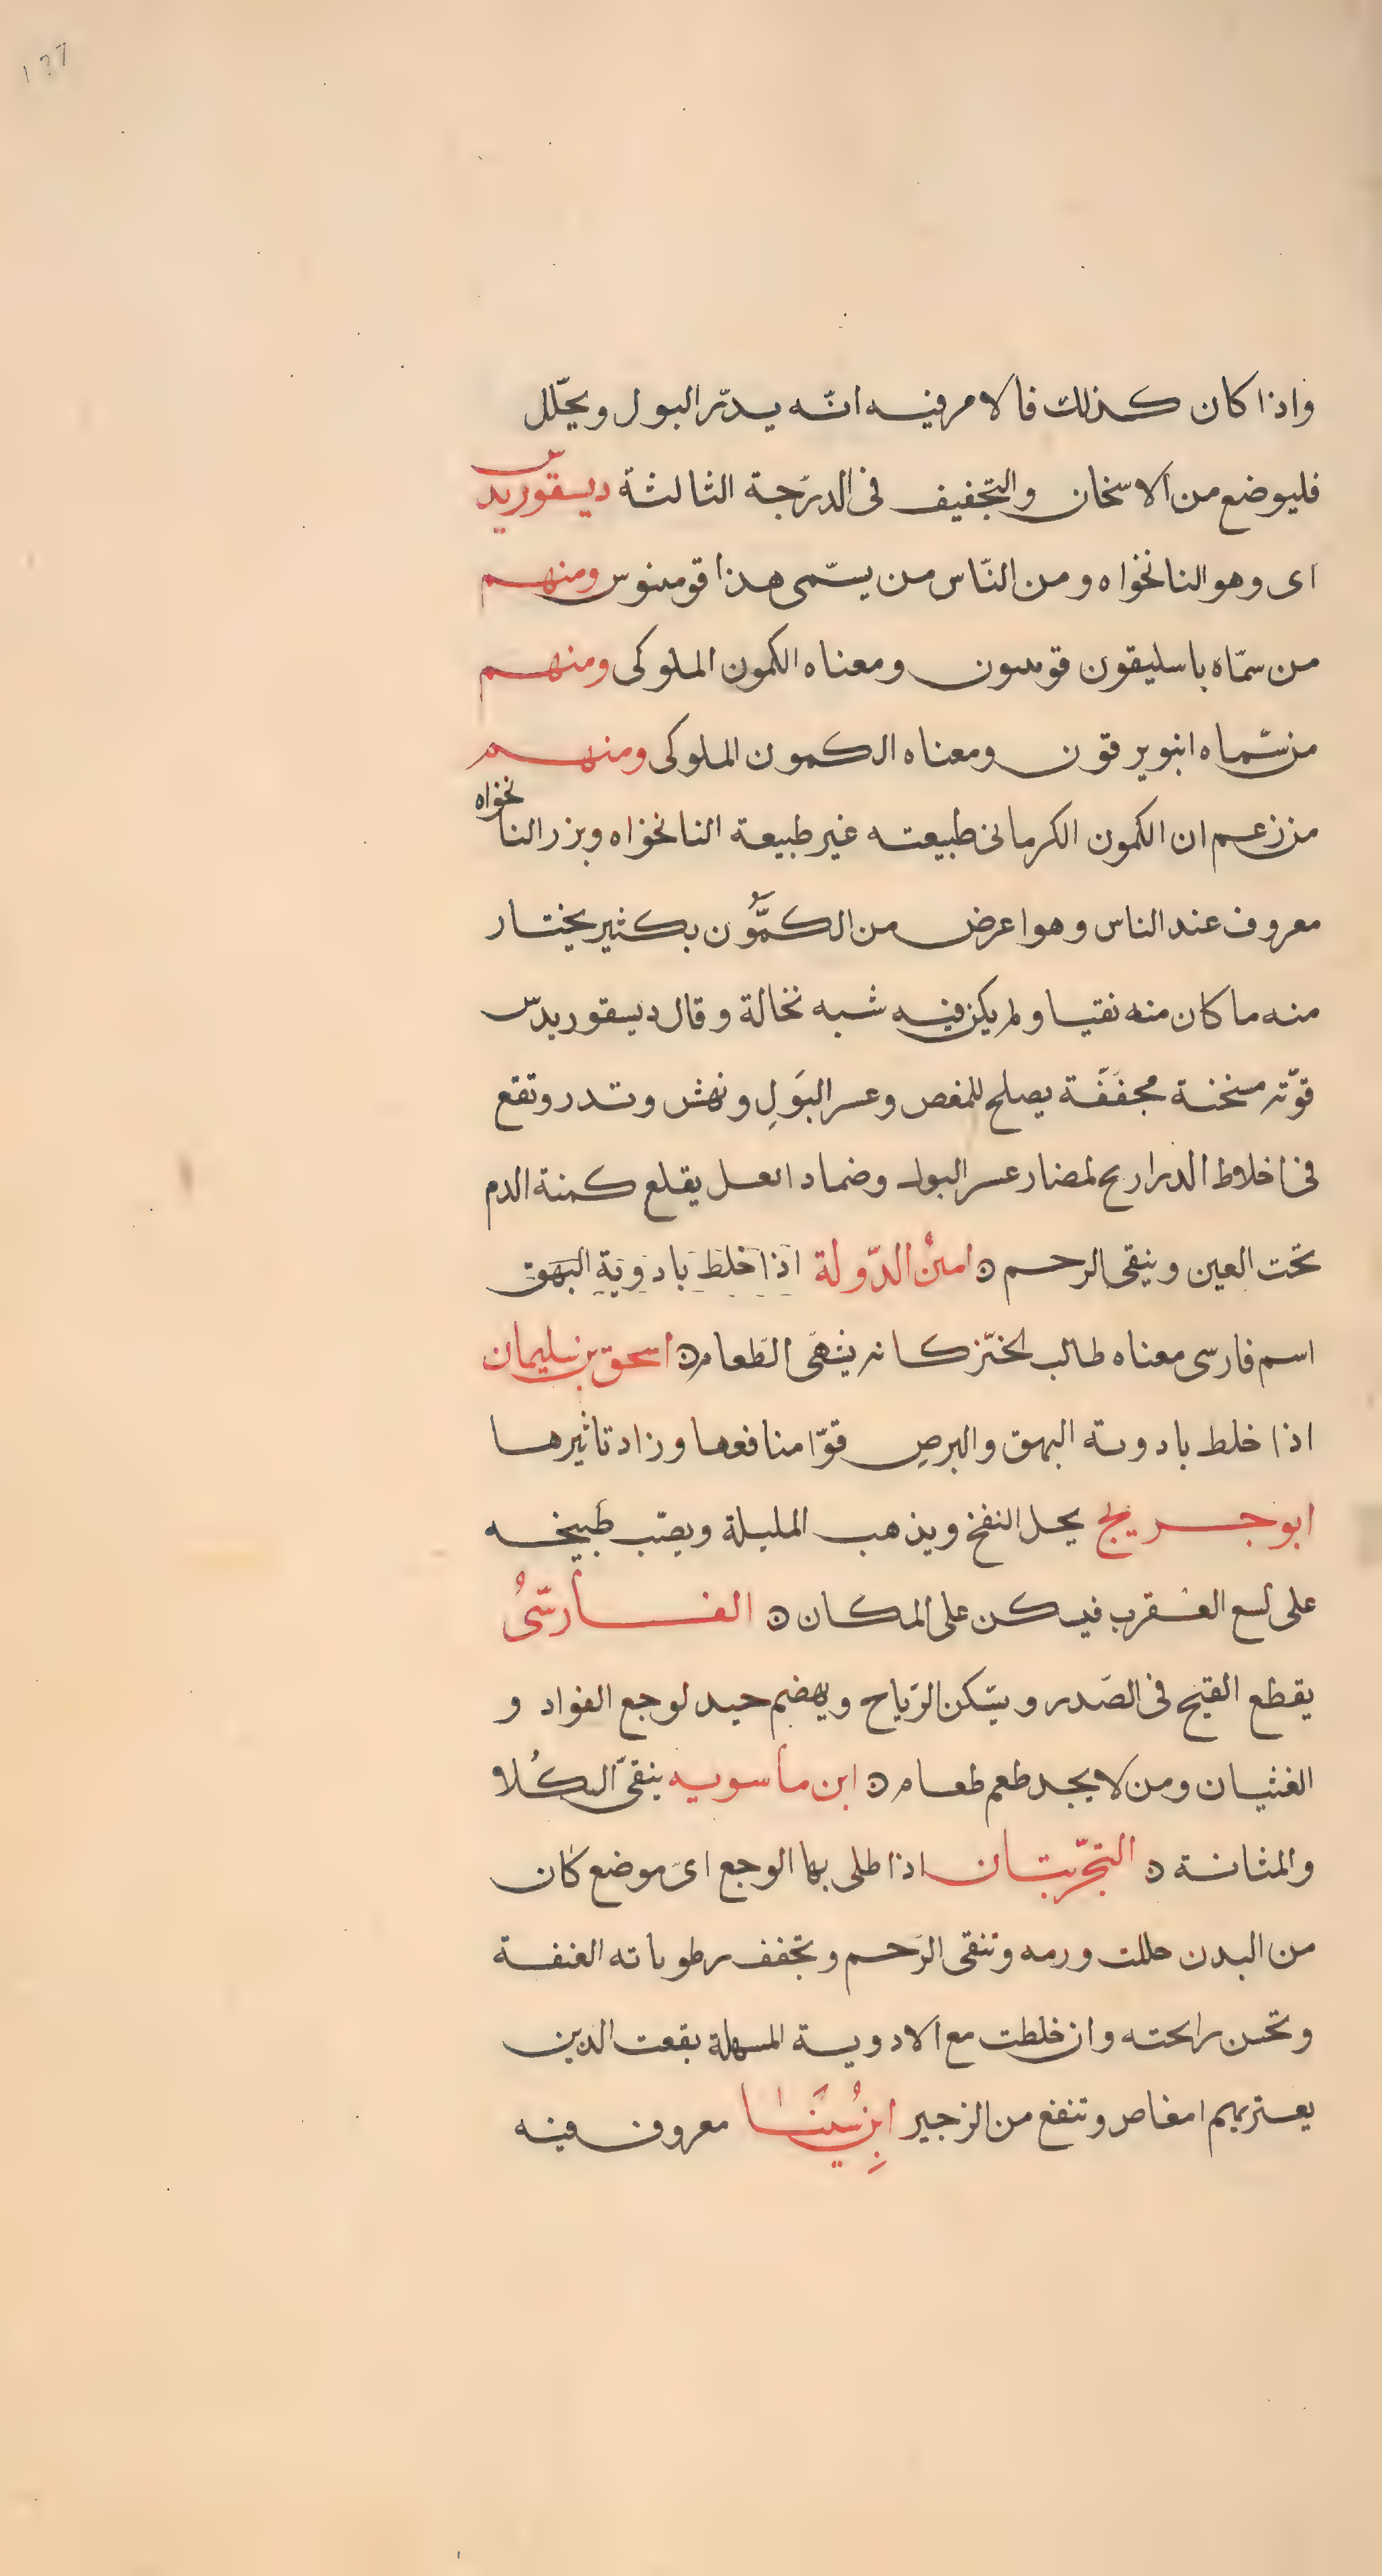 واذا كان كذلك فالامر فيه انّه يدرّ البول ويحلّل
فليوضع من الاسخان والتجفيف فى الدرجة الثالثة ديسقوريدس
اى وهو النانخواه ومن النّاس من يسّمى هذا قومىنوس ومنهم
من سمّاه باسليقون قومىىون ومعناه الكمون الملوكى ومنهم
من سّماه اىىويرقون ومعناه الكمون الملوكى ومنهم
من زعم ان الكمون الكرمانى طبيعته غير طبيعة النانخواه وبزر النانخواه
معروف عند الناس وهو اعرض من الكمُّون بكثير يختار
منه ما كان منه نقيا ولم يكن فيه شبه نخالة وقال ديسقوريدس
قوّته مسخنة مجففّة يصلح للمغص وعسر البَولِ ونهش وتدر وتقع
فى اخلاط الذراريح لمضار عسر البول وضماد العسل يقلع كمنة الدم
تحت العين وينقى الرحم ه امينُ الدّولة اذا خلط بادوية البهق
اسم فارسى معناه طالب الخبز كانه يشهّى الطّعام ه اسحق بن سليمان
اذا خلط بادوية البهق والبرصِ قوّا منافعها وزاد تاثيرها
ابو جريج يحل النفخ ويذهب المليلة ويصّب طَبيخه
على لسع العقرب فيسكن على المكان ه الفارسّىُ
يقطع القيح فى الصّدر ويسّكن الرّياح ويهضم جيد لوجع الفواد و
الغثيان ومن لا يجد طعم طعام ه ابن ماسويه ينقّى الكُلا
والمثانة ه التجرّبتان اذا طلى بها الوجع اىّ موضع كان
من البدن حللت ورمه وتنقى الرّحم وتجفف رطوباته العفنة
وتحسن رايحته وان خلطت مع الادوية المسهلة نفعت الذين
يعتريهم امغاص وتنفع من الزحير ابنِ سُينَا معروف فيه